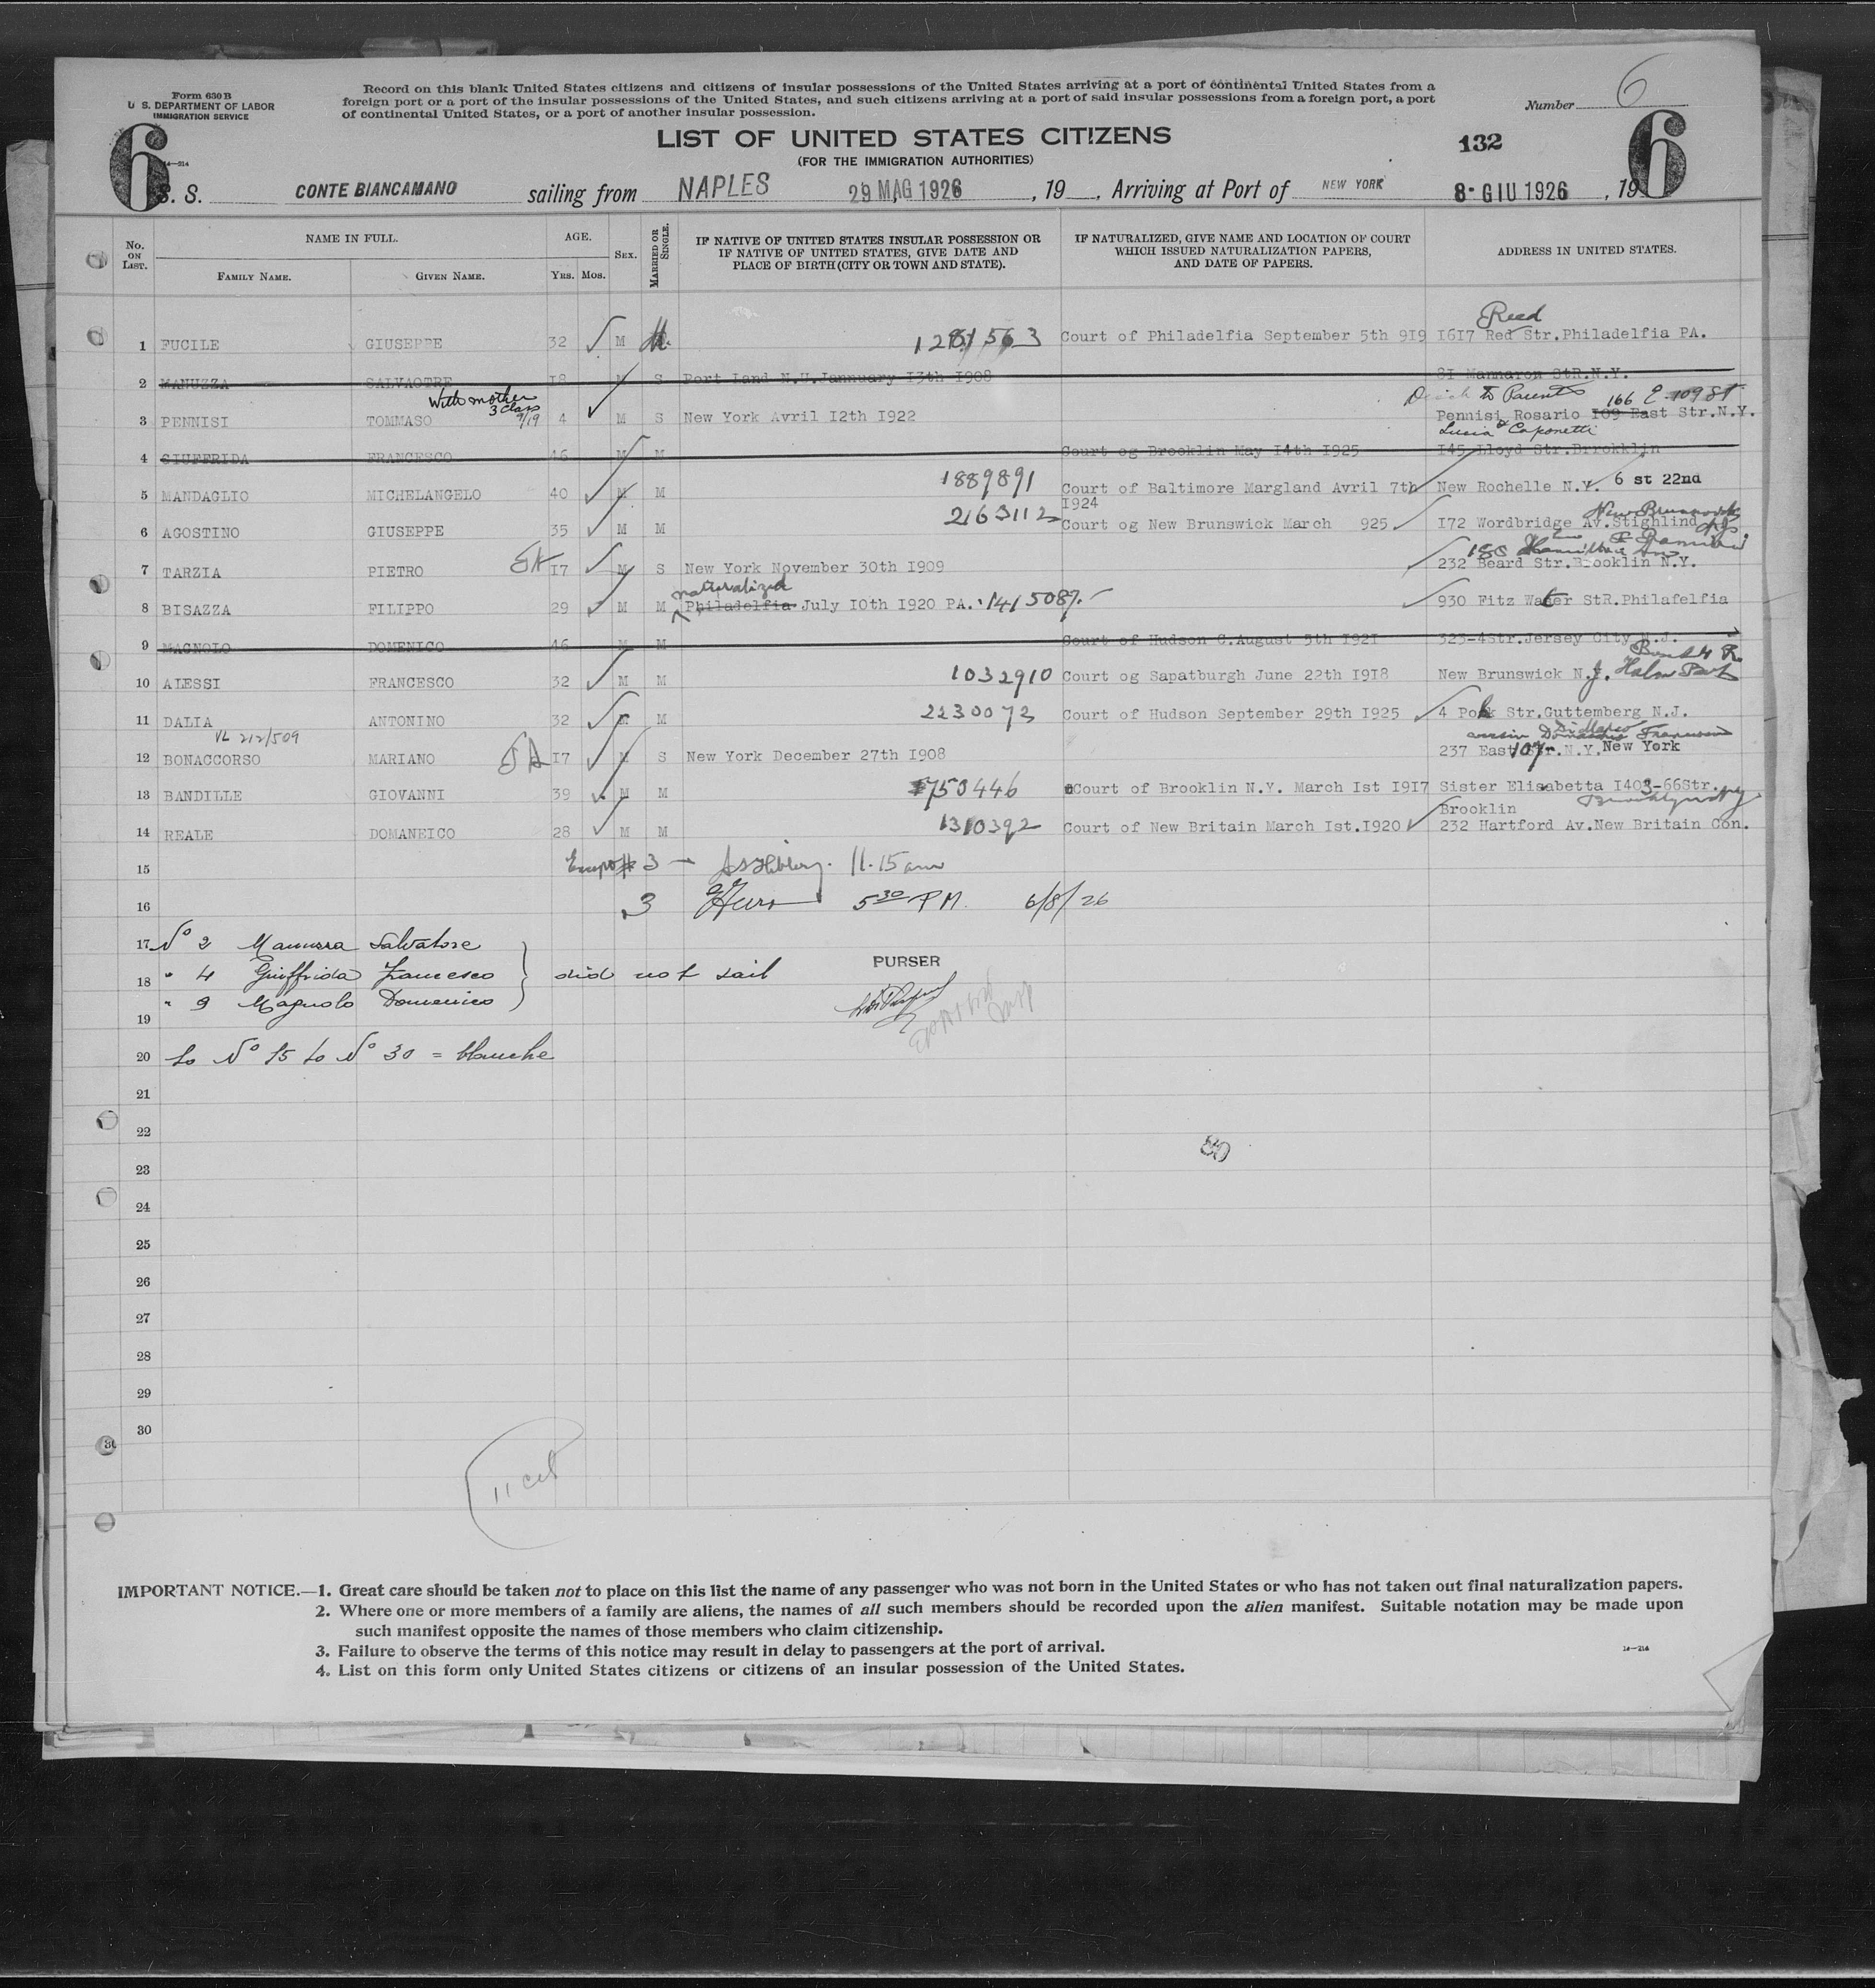 Form 630 B
U. S. DEPARTMENT OF LABOR
IMMIGRATION SERVICE
Record on this blank United States citizens and citizens of insular possessions of the United States arriving at a port of continental United States from a
foreign port or a port of the insular possessions of the United States, and such citizens arriving at a port of said insular possessions from a foreign port, a port
of continental United States, or a port of another insular possession.
Number 6
LIST OF UNITED STATES CITIZENS
(FOR THE IMMIGRATION AUTHORITIES)
132
6 6
14—214
S. S. CONTE BIANCAMANO sailing from NAPLES 29 MAG 1926, 19__, Arriving at Port of NEW YORK 8- GIU 1926, 19
No. ON LIST. NAME IN FULL. FAMILY NAME. GIVEN NAME. AGE. YRS. MOS. SEX. MARRIED OR SINGLE. IF NATIVE OF UNITED STATES INSULAR POSSESSION OR IF NATIVE OF UNITED STATES, GIVE DATE AND PLACE OF BIRTH (CITY OR TOWN AND STATE). IF NATURALIZED, GIVE NAME AND LOCATION OF COURT WHICH ISSUED NATURALIZATION PAPERS, AND DATE OF PAPERS. ADDRESS IN UNITED STATES.
Reed
1 FUCILE GIUSEPPE 32 M M. 1281563 Court of Philadelfia September 5th 919 I6I7 Red Str.Philadelfia PA.
2 MANUZZA SALVAOTRE I8 M S Port Land N.U.Jannuary I3th I908 8I Mannaron StR.N.Y.
With mother 3 Class 9/19 to Parents 166 E 109 St
3 PENNISI TOMMASO 4 M S New York Avril I2th I922 Pennisi Rosario I09 East Str.N.Y.
Lucia Caponetti
4 GIUFFRIDA FRANCESCO 46 M M Court og Brocklin May I4th I925 I45 Lloyd Str.Brrokklin
5 MANDAGLIO MICHELANGELO 40 M M 1889891 Court of Baltimore Margland Avril 7th I924 New Rochelle N.Y. 6 st 22nd
New Brunswick
6 AGOSTINO GIUSEPPE 35 M M 2163112 Court og New Brunswick March 925 I72 Wordbridge Av.Stighlind
Hamilton Ave
7 TARZIA PIETRO I7 M S New York November 30th I909 232 Beard Str.Brooklin N.Y.
naturalized
8 BISAZZA FILIPPO 29 M M Philadelfia July I0th I920 PA. 1415087. 930 Fitz Water StR.Philafelfia
9 MAGNOLO DOMENICO 46 M M Court of Hudson C.August 5th I92I 323-4Str.Jersey City N.J.
10 ALESSI FRANCESCO 32 M M 1032910 Court og Sapatburgh June 22th I9I8 New Brunswick N.J.
11 DALIA ANTONINO 32 M M 2230073 Court of Hudson September 29th I925 4 Polk Str.Guttemberg N.J.
VL 212/509
12 BONACCORSO MARIANO I7 M S New York December 27th I908 237 East 107 Str.N.Y. New York
13 BANDILLE GIOVANNI 39 M M 750446 Court of Brooklin N.Y. March Ist I9I7 Sister Elisabetta I403-66Str.
Brooklyn NY
Brooklin
14 REALE DOMANEICO 28 M M 1310392 Court of New Britain March Ist.I920 232 Hartford Av.New Britain Con.
15 # 3 — 11.15 am
16 3 5 30 P.M. 6/8/26
17 No 2 Manuzza Salvatore
18 " 4 Giuffrida Francesco } did not sail PURSER
19 " 9 Magnolo Domenico
20 to No 15 to No 30 = blanche
21
22
23
24
25
26
27
28
29
30
11 cit
IMPORTANT NOTICE.—1. Great care should be taken not to place on this list the name of any passenger who was not born in the United States or who has not taken out final naturalization papers.
2. Where one or more members of a family are aliens, the names of all such members should be recorded upon the alien manifest. Suitable notation may be made upon
such manifest opposite the names of those members who claim citizenship.
3. Failure to observe the terms of this notice may result in delay to passengers at the port of arrival.
14—214
4. List on this form only United States citizens or citizens of an insular possession of the United States.